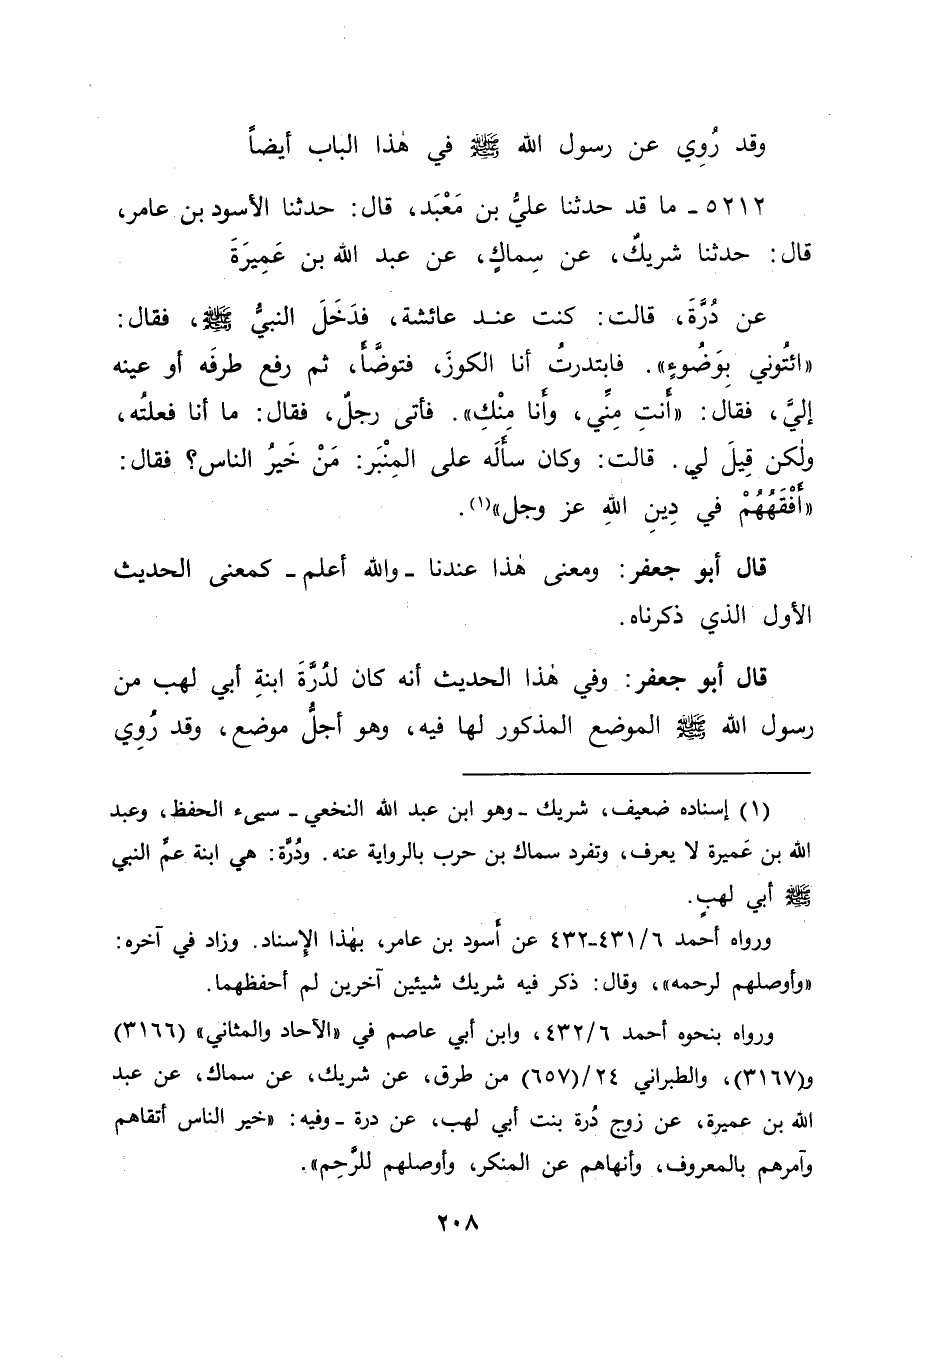 وقد رُوِي عن رسول الله ﷺ في هٰذا الباب أيضاً
٥٢١٢ ـ ما قد حدثنا عليُّ بن مَعْبَد، قال: حدثنا الأسود بن عامر،
قال: حدثنا شريكٌ، عن سِماكٍ، عن عبد الله بن عَمِيرَةَ
عن دُرَّةَ، قالت: كنت عند عائشة، فدَخَلَ النبيُّ ﷺ، فقال:
«ائتُوني بِوَضُوءٍ». فابتدرتُ أنا الكوزَ، فتوضَّأَ، ثم رفع طرفَه أو عينه
إليَّ، فقال: «أَنتِ مِنِّي، وأَنا مِنْكِ». فأتى رجلٌ، فقال: ما أنا فعلتُه،
ولٰكن قِيلَ لي. قالت: وكان سأَلَه على المِنْبَر: مَنْ خَيرُ الناس؟ فقال:
«أَفْقَهُهُمْ في دِينِ اللهِ عز وجل»(١).
قال أبو جعفر: ومعنى هٰذا عندنا ـ والله أعلم ـ كمعنى الحديث
الأول الذي ذكرناه.
قال أبو جعفر: وفي هٰذا الحديث أنه كان لدُرَّةَ ابنةِ أبي لهب من
رسول الله ﷺ الموضع المذكور لها فيه، وهو أجلُّ موضع، وقد رُوِي
(١) إسناده ضعيف، شريك ـ وهو ابن عبد الله النخعي ـ سيىء الحفظ، وعبد
الله بن عَميرة لا يعرف، وتفرد سماك بن حرب بالرواية عنه. ودُرَّة: هي ابنة عمِّ النبي
ﷺ أبي لهبٍ.
ورواه أحمد ٤٣١/٦-٤٣٢ عن أَسود بن عامر، بهٰذا الإِسناد. وزاد في آخره:
«وأوصلهم لرحمه»، وقال: ذكر فيه شريك شيئين آخرين لم أحفظهما.
ورواه بنحوه أحمد ٤٣٢/٦، وابن أبي عاصم في «الآحاد والمثاني» (٣١٦٦)
و(٣١٦٧)، والطبراني ٢٤/(٦٥٧) من طرق، عن شريك، عن سماك، عن عبد
الله بن عميرة، عن زوج دُرة بنت أبي لهب، عن درة ـ وفيه: «خير الناس أتقاهم
وآمرهم بالمعروف، وأنهاهم عن المنكر، وأوصلهم للرَّحِم».
٢٠٨